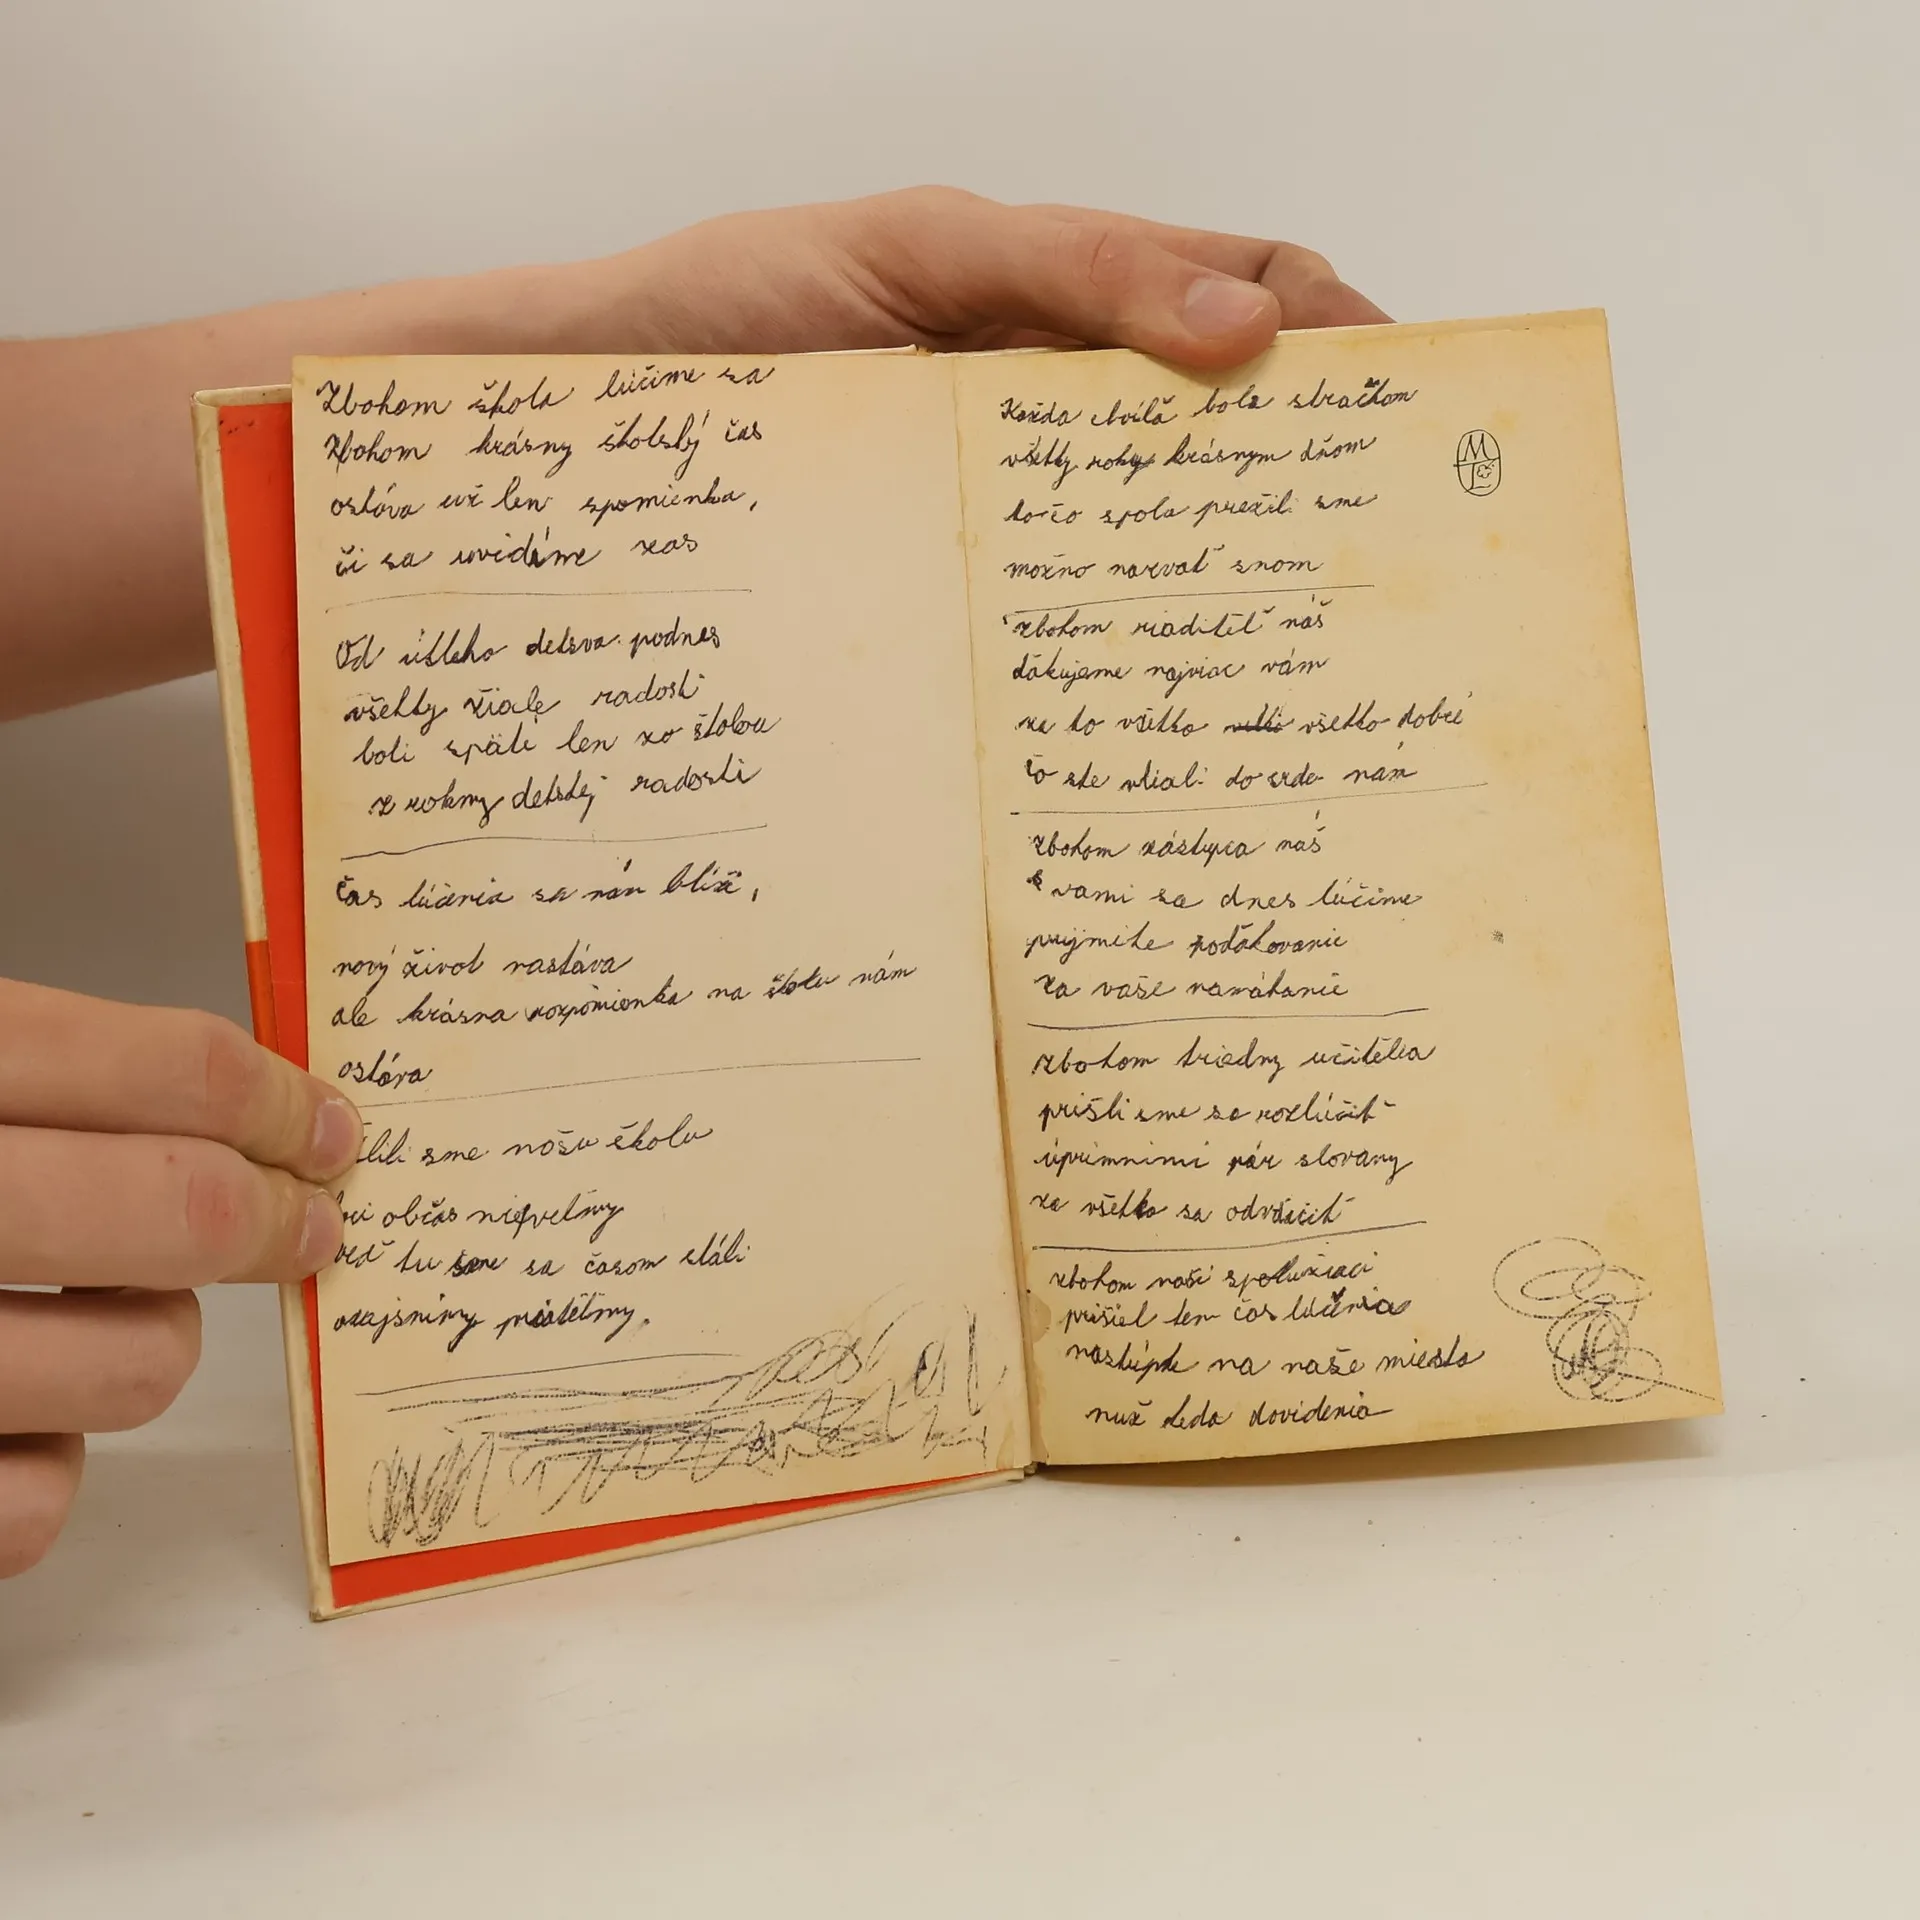 Zbohom škola lúčime sa
Zbohom krásny školský čas
ostáva už len spomienka,
či sa uvidíme zas
Od útleho detsva podnes
všetky žiale radosti
boli späté len zo školou
z rokmy detskej radosti
čas lúčenia sa nám blíži,
nový život nastáva
ale krásna rozpomienka na školu nám
ostáva
sme našu školu
občas nepvetivy
veď tu sme sa časom stáli
ozajsniny priatélmy.
Každa chvílä bola stračkom
všetky roky krásnym dňom
to čo spola prežili sme
možno nazvať snom
zbohom riaditéľ náš
ďakujeme najviac vám
za to všetko všetko dobré
čo ste vliali do srdc nám
zbohom zástupca náš
s vami sa dnes lúčime
prijmite poďakovanie
za vaše namáhanie
zbohom triedny učitélia
prišli sme sa rozlúčiť
úprimnimi pár slovamy
za všetko sa odvďačiť
zbohom naši spolužiaci
prišiel ten čas lúčenia
nastúpte na naše miesta
nuž teda dovidenia
ML